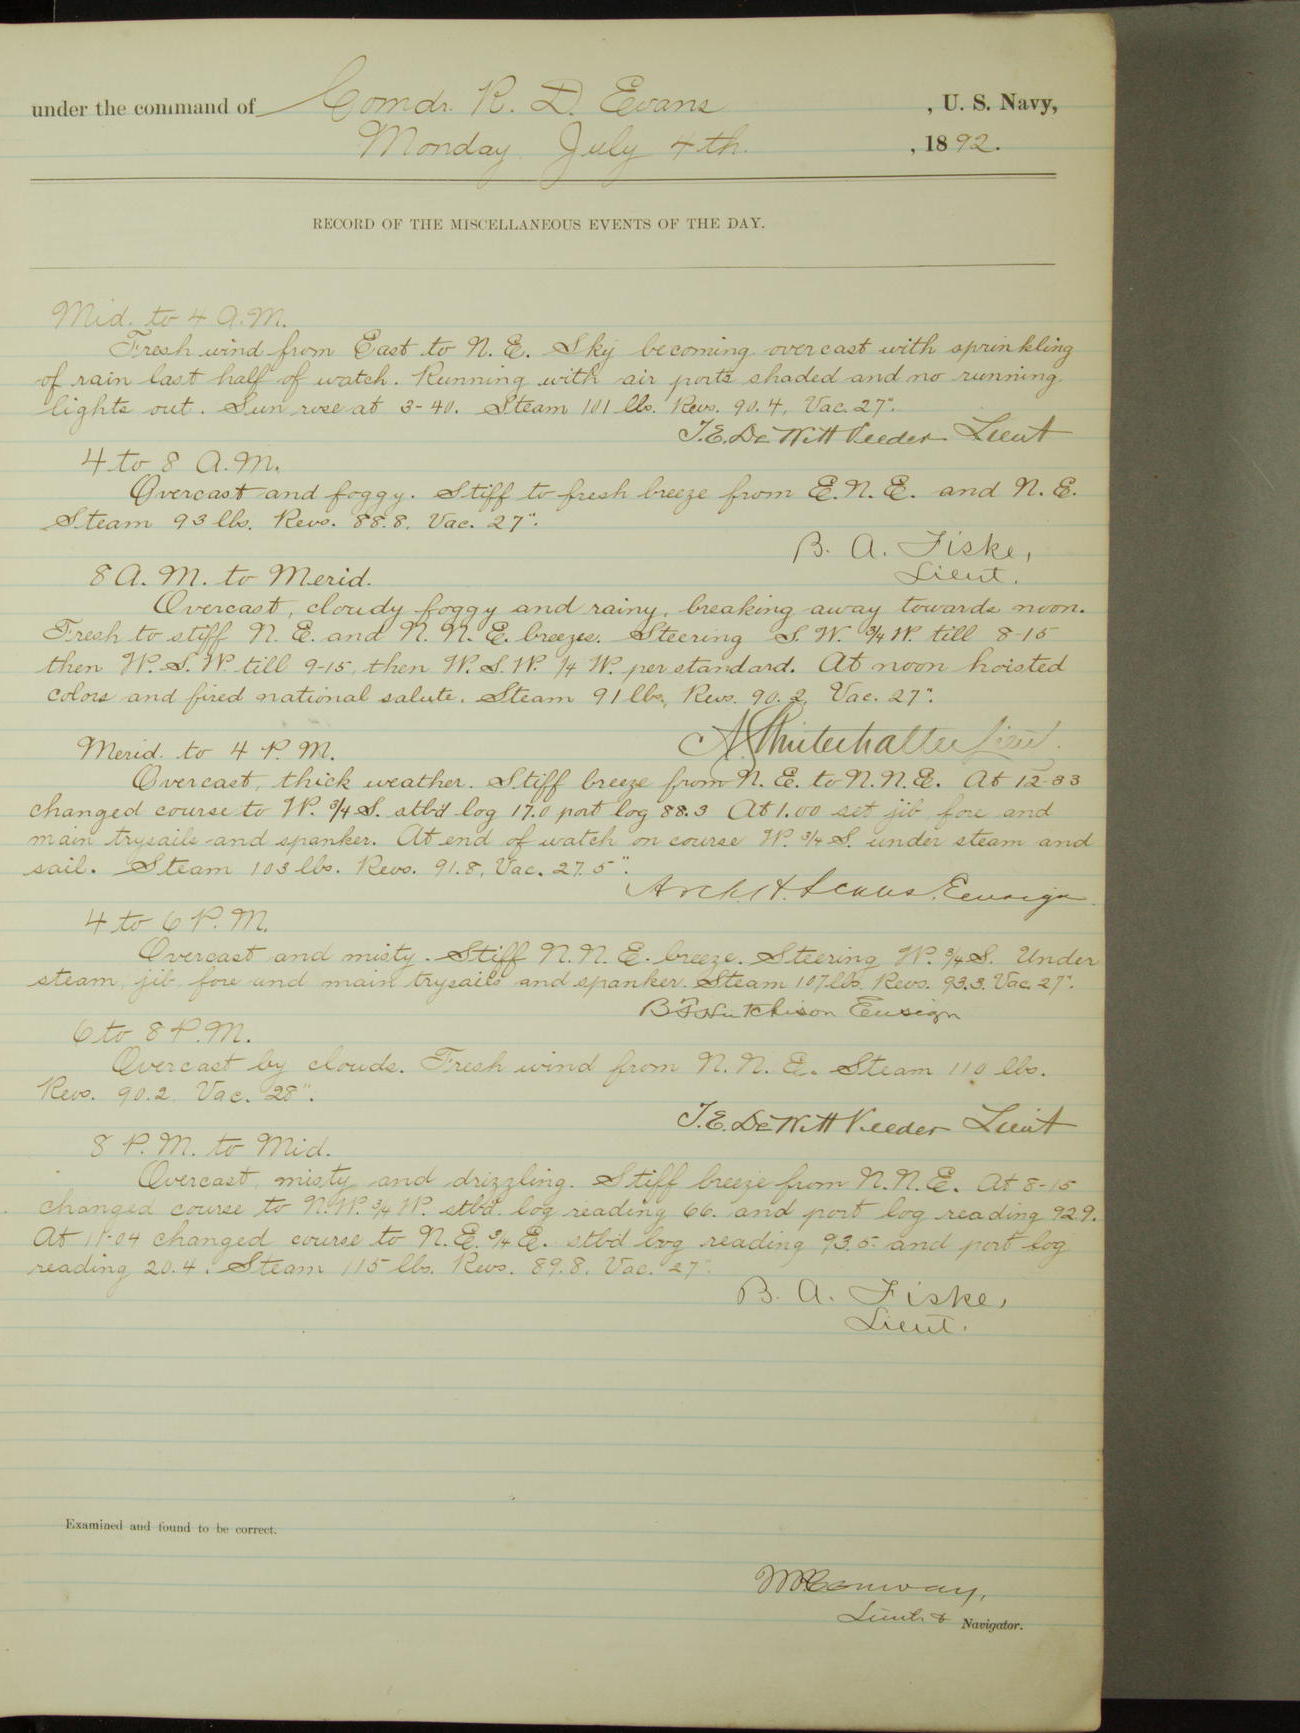 under the command of Comdr. R. D. Evans , U. S. Navy,
Monday July 4th. , 1892.
RECORD OF THE MISCELLANEOUS EVENTS OF THE DAY.
Mid. to 4 A.M.
Fresh wind from East to N. E. Sky becoming overcast with sprinkling
of rain last half of watch. Running with air ports shaded and no running
lights out. Sun rose at 3-40. Steam 101 lbs. Revs. 90.4, Vac. 27".
T.E. DeWitt Veeder Lieut
4 to 8 A.M.
Overcast and foggy. Stiff to fresh breeze from E.N.E. and N.E.
Steam 93 lbs. Revs. 88.8, Vac. 27".
B. A. Fiske,
Lieut.
8 A. M. to Merid.
Overcast, cloudy foggy and rainy, breaking away towards noon.
Fresh to stiff N. E. and N. N. E. breezes. Steering S. W. 3/4 W. till 8-15
then W. S. W. till 9-15, then W. S. W. 1/4 W. per standard. At noon hoisted
colors and fired national salute. Steam 91 lbs, Revs. 90.2, Vac. 27".
Lieut.
Merid. to 4 P. M.
Overcast, thick weather. Stiff breeze from N. E. to N. N. E. At 12-33
changed course to W. 3/4 S. stb'd log 17.0 port log 88.3 At 1.00 set jib, fore and
main trysails and spanker. At end of watch on course W. 3/4 S. under steam and
sail. Steam 103 lbs. Revs. 91.8, Vac. 27.5".
Arch. H. Ensign.
4 to 6 P.M.
Overcast and misty. Stiff N. N. E. breeze. Steering W. 3/4 S. Under
steam, jib, fore and main trysails and spanker. Steam 107 lbs. Revs. 93.3. Vac. 27".
B F Hutchison Ensign
6 to 8 P.M.
Overcast by clouds. Fresh wind from N. N. E. Steam 110 lbs.
Revs. 90.2. Vac. 28".
T.E. DeWitt Veeder Lieut
8 P. M. to Mid.
Overcast, misty and drizzling. Stiff breeze from N. N. E. At 8-15
changed course to N.W. 3/4 W. stbd. log reading 66. and port log reading 92.9.
At 11-04 changed course to N. E. 3/4 E. stb'd log reading 93.5 and port log
reading 20.4. Steam 115 lbs. Revs. 89.8. Vac. 27".
B. A. Fiske,
Lieut.
Examined and found to be correct.
Conway,
Lieut. & Navigator.